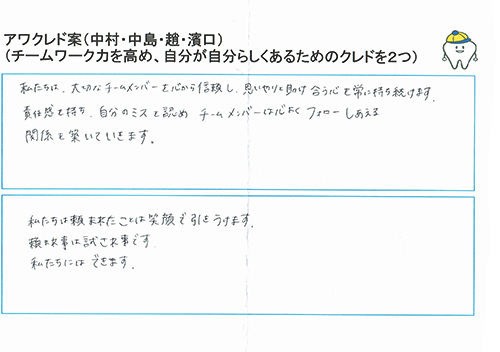 アワクレド案(中村・中島・趙・濱口)
(チームワーク力を高め、自分が自分らしくあるためのクレドを2つ)
私たちは、大切なチームメンバーを心から信頼し、思いやりと助け合う心を常に持ち続けます。
責任感を持ち、自分のミスを認め チームメンバーは心よく フォローしあえる
関係を築いていきます。
私たちは頼まれたことは笑顔で引きうけます。
頼まれ事は試され事です。
私たちにはできます。